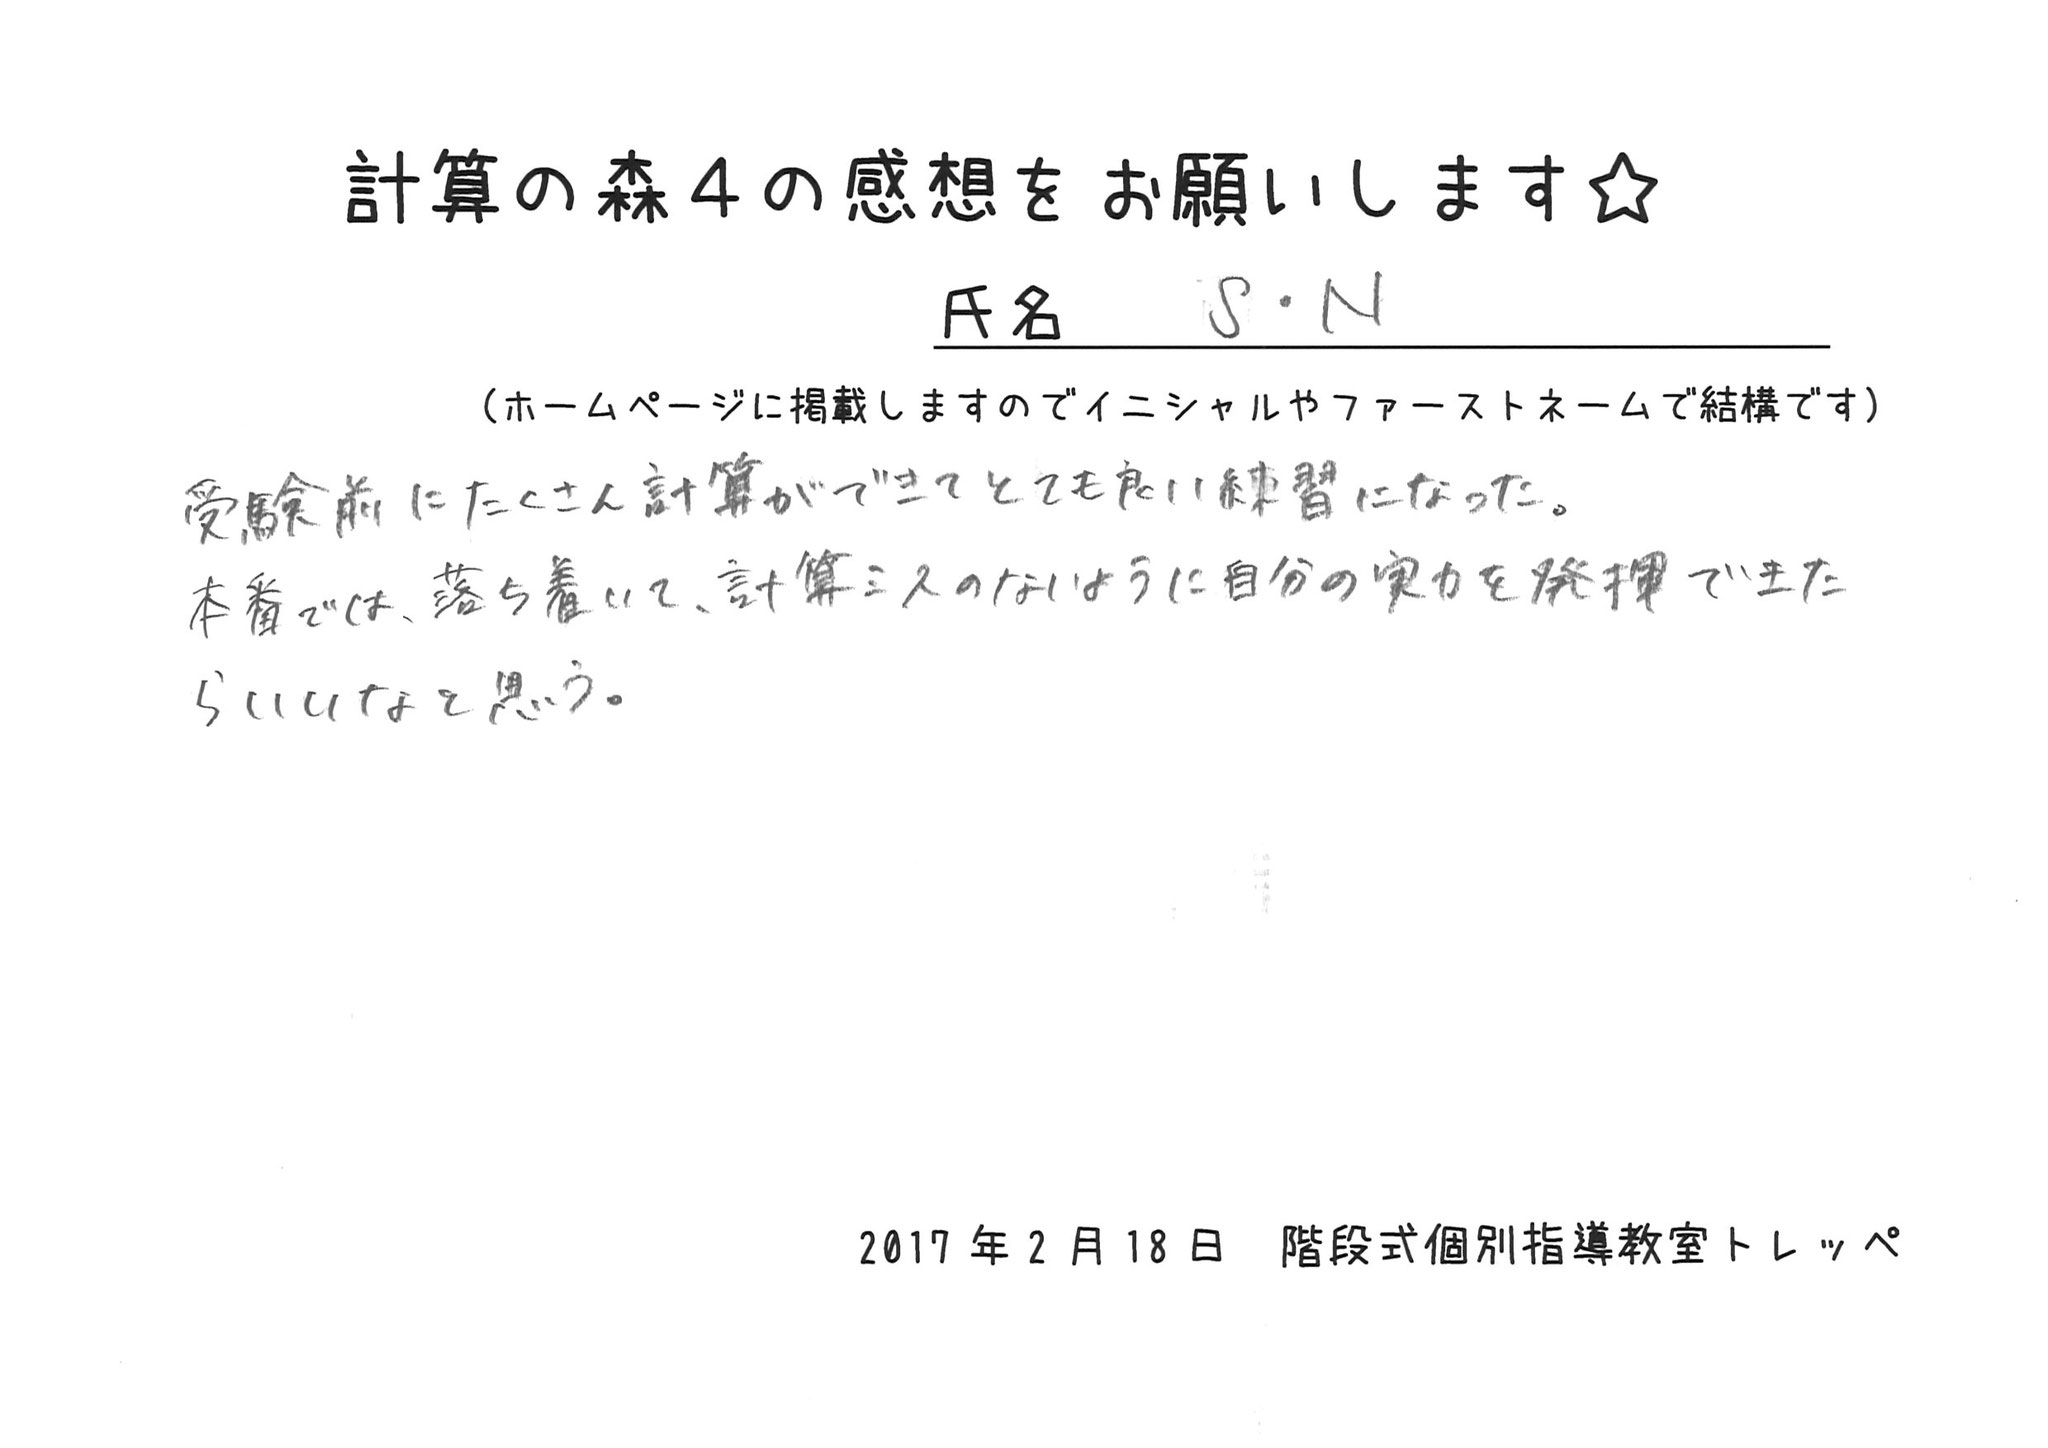 計算の森４の感想をお願いします☆
氏名 S・N
（ホームページに掲載しますのでイニシャルやファーストネームで結構です）
受験前にたくさん計算ができてとても良い練習になった。
本番では、落ち着いて、計算ミスのないように自分の実力を発揮できた
らいいなと思う。
2017年2月18日 階段式個別指導教室トレッペ